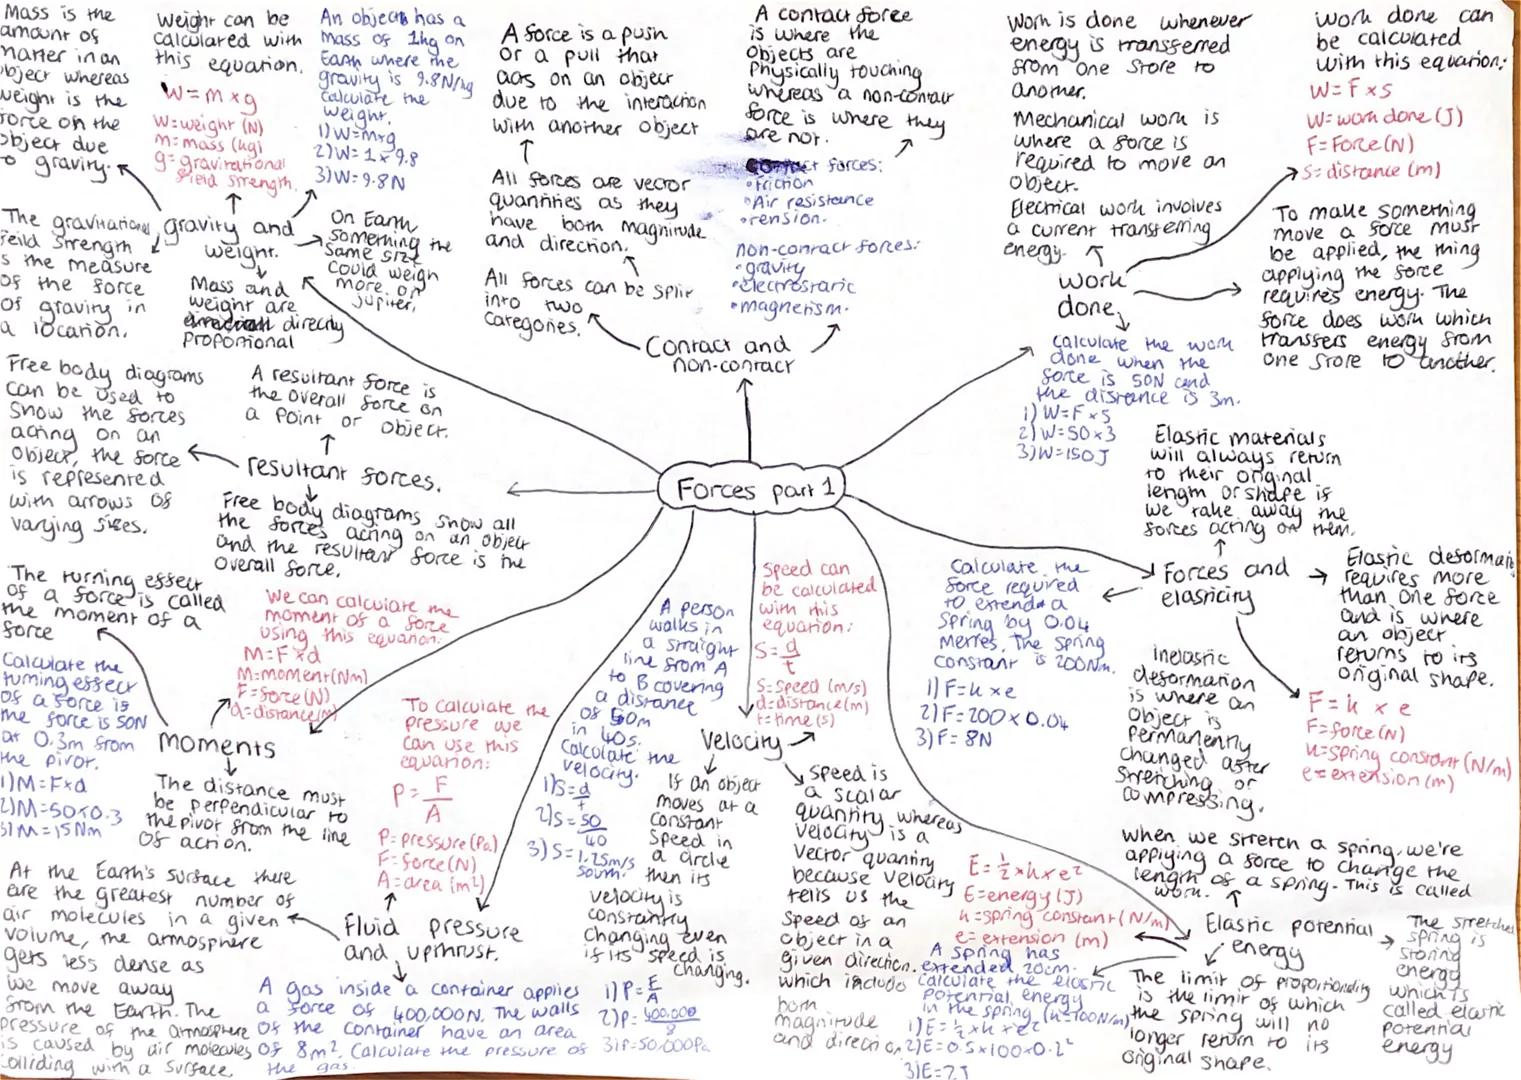 Mass is the
amount of
matter in an
object whereas
weight is the
force on the
object due
to gravity.
Weight can be
calculated with
this equation.
W = m x g
W=weight (N)
m=mass (kg)
g= gravitational
field strength.
An object has a
mass of 1kg on
Earth where the
gravity is 9.8N/kg
calculate the
weight.
1) W=mxg
2) W= 1 x 9.8
3) W= 9.8N
The gravitational
feild strength
is the measure
of the force
of gravity in
a location.
gravity and
weight.
On Earth
something the
same size
could weigh
more on
jupiter.
Mass and
weight are
directly
proportional
A force is a push
or a pull that
acts on an object
due to the interaction
with another object
All forces are vector
quantities as they
have both magnitude
and direction.
All forces can be split
into two
categories.
A contact force
is where the
objects are
Physically touching
whereas a non-contact
force is where they
are not.
Contact forces:
•friction
•Air resistance
•tension.
non-contact forces:
•gravity
•electrostatic
•magnetism.
Contact and
non-contact
Work is done whenever
energy is transferred
from one store to
another.
Mechanical work is
where a force is
required to move an
object.
Electrical work involves
a current transferring
energy.
work
done.
work done can
be calculated
with this equation:
W=F x s
W=work done (J)
F=Force(N)
s=distance (m)
To make something
move a force must
be applied, the thing
applying the force
requires energy. The
force does work which
transfers energy from
one store to another.
Calculate the work
done when the
force is 50N and
the distance is 3m.
1) W=F x s
2) W=50 x 3
3) W=150J
Free body diagrams
can be used to
show the forces
acting on an
object, the force
is represented
with arrows of
varying sizes.
A resultant force is
the overall force on
a point or object.
resultant forces.
Free body diagrams show all
the forces acting on an object
and the resultant force is the
overall force.
Forces part 1
Elastic materials
will always return
to their original
length or shape if
we take away the
forces acting on them.
Forces and
elasticity
Elastic deformati
requires more
than one force
and is where
an object
returns to its
original shape.
Calculate the
force required
to extend a
spring by 0.04
metres. The spring
constant is 200Nm.
1) F=k x e
2) F=200 x 0.04
3) F= 8N
inelastic
deformation
is where an
object is
permanently
changed after
stretching or
compressing.
F= k x e
F=force(N)
k=spring constant (N/m)
e=extension (m)
The turning effect
of a force is called
the moment of a
force
We can calculate the
moment of a force
using this equation:
M=F x d
M=moment(Nm)
F=force(N)
d=distance(m)
Calculate the
turning effect
of a force if
the force is 50N
at 0.3m from
the pivot.
1)M=Fxd
2)M=50x0.3
3)M=15Nm
Moments
The distance must
be perpendicular to
the pivot from the line
of action.
To calculate the
pressure we
can use this
equation:
P= F
A
P=pressure(Pa)
F=force(N)
A=area (m²)
A person
walks in
a straight
line from A
to B covering
a distance
of 50m
in 40s.
Calculate the
velocity.
1)S=d
t
2)S=50
40
3) S=1.25m/s
south.
Speed can
be calculated
with this
equation:
S=d
t
S=speed (m/s)
d=distance(m)
t=time(s)
Velocity
If an object
moves at a
constant
speed in
a circle
then its
velocity is
constantly
changing even
if its speed is
changing.
Speed is
a scalar
quantity whereas
velocity is a
vector quantity
because velocity
tells us the
speed of an
object in a
given direction.
which include
both
magnitude
and direction
At the Earth's surface there
are the greatest number of
air molecules in a given
volume, the atmosphere
gets less dense as
we move away
from the Earth. The
pressure of the atmosphere
is caused by air molecules
colliding with a surface.
Fluid pressure
and upthrust.
A gas inside a container applies
a force of 400,000N. The walls
of the container have an area
of 8m². Calculate the pressure of
the gas.
1) P=F
A
2)P=400,000
8
3)P=50,000Pa
when we stretch a spring, we're
applying a force to change the
length of a spring. This is called
work.
E=½ x k x e²
E=energy (J)
k=spring constant (N/m)
e=extension (m)
Elastic potential
energy
The stretched
spring is
storing
energy
which is
called elastic
potential
energy
The limit of proportionality
is the limit of which
the spring will no
longer return to its
original shape.
A spring has
extended 20cm.
Calculate the elastic
potential energy
in the spring (k=100N/m)
1) E=½ x k x e²
2)E=0.5x100x0.2²
3)E=2J